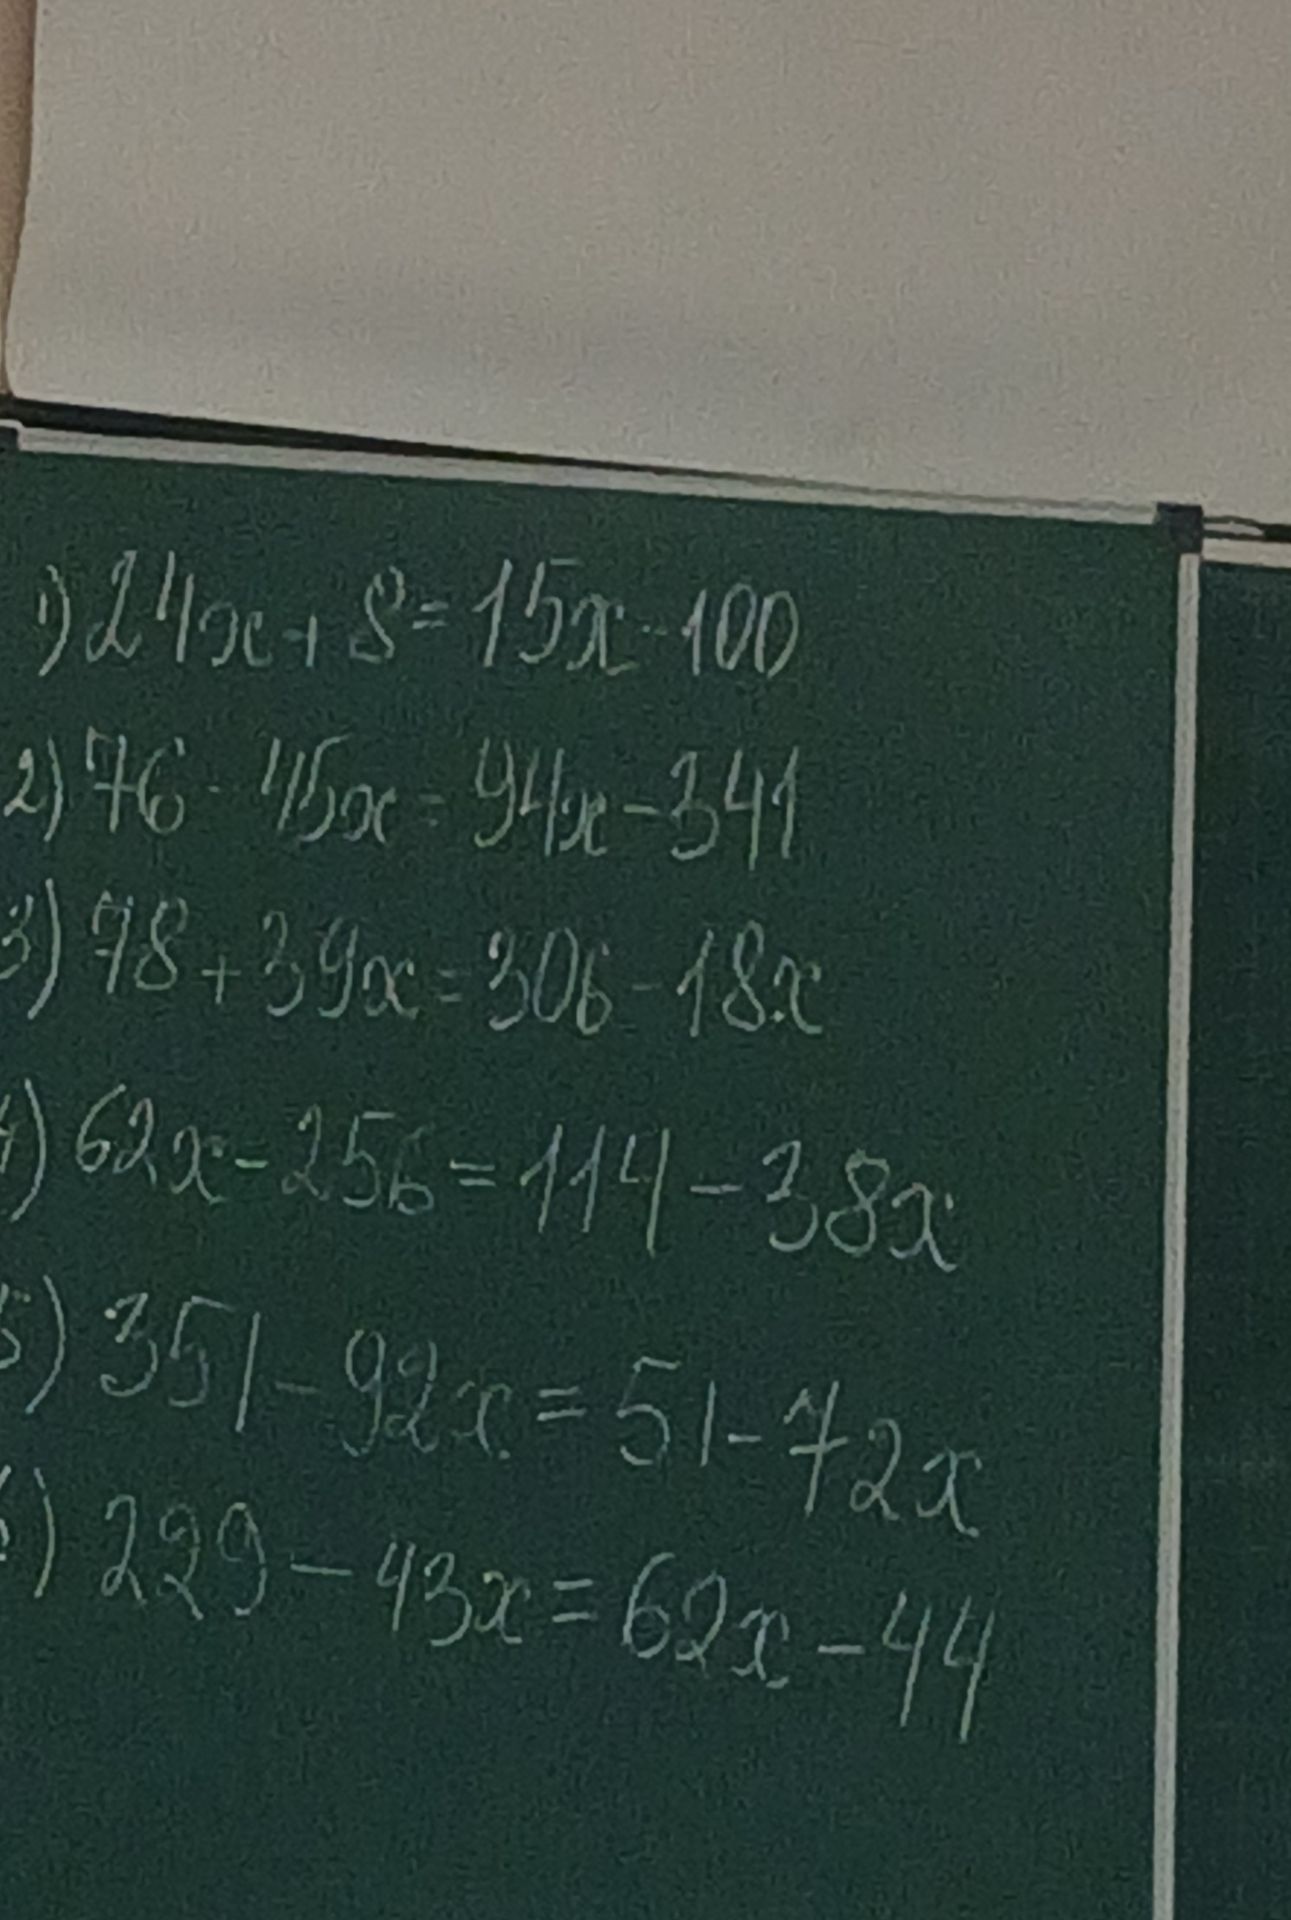 1) 24x + 8 = 15x - 100
2) 76 - 45x = 94x - 341
3) 78 + 39x = 306 - 18x
4) 62x - 256 = 114 - 38x
5) 351 - 92x = 51 - 72x
6) 229 - 43x = 62x - 44